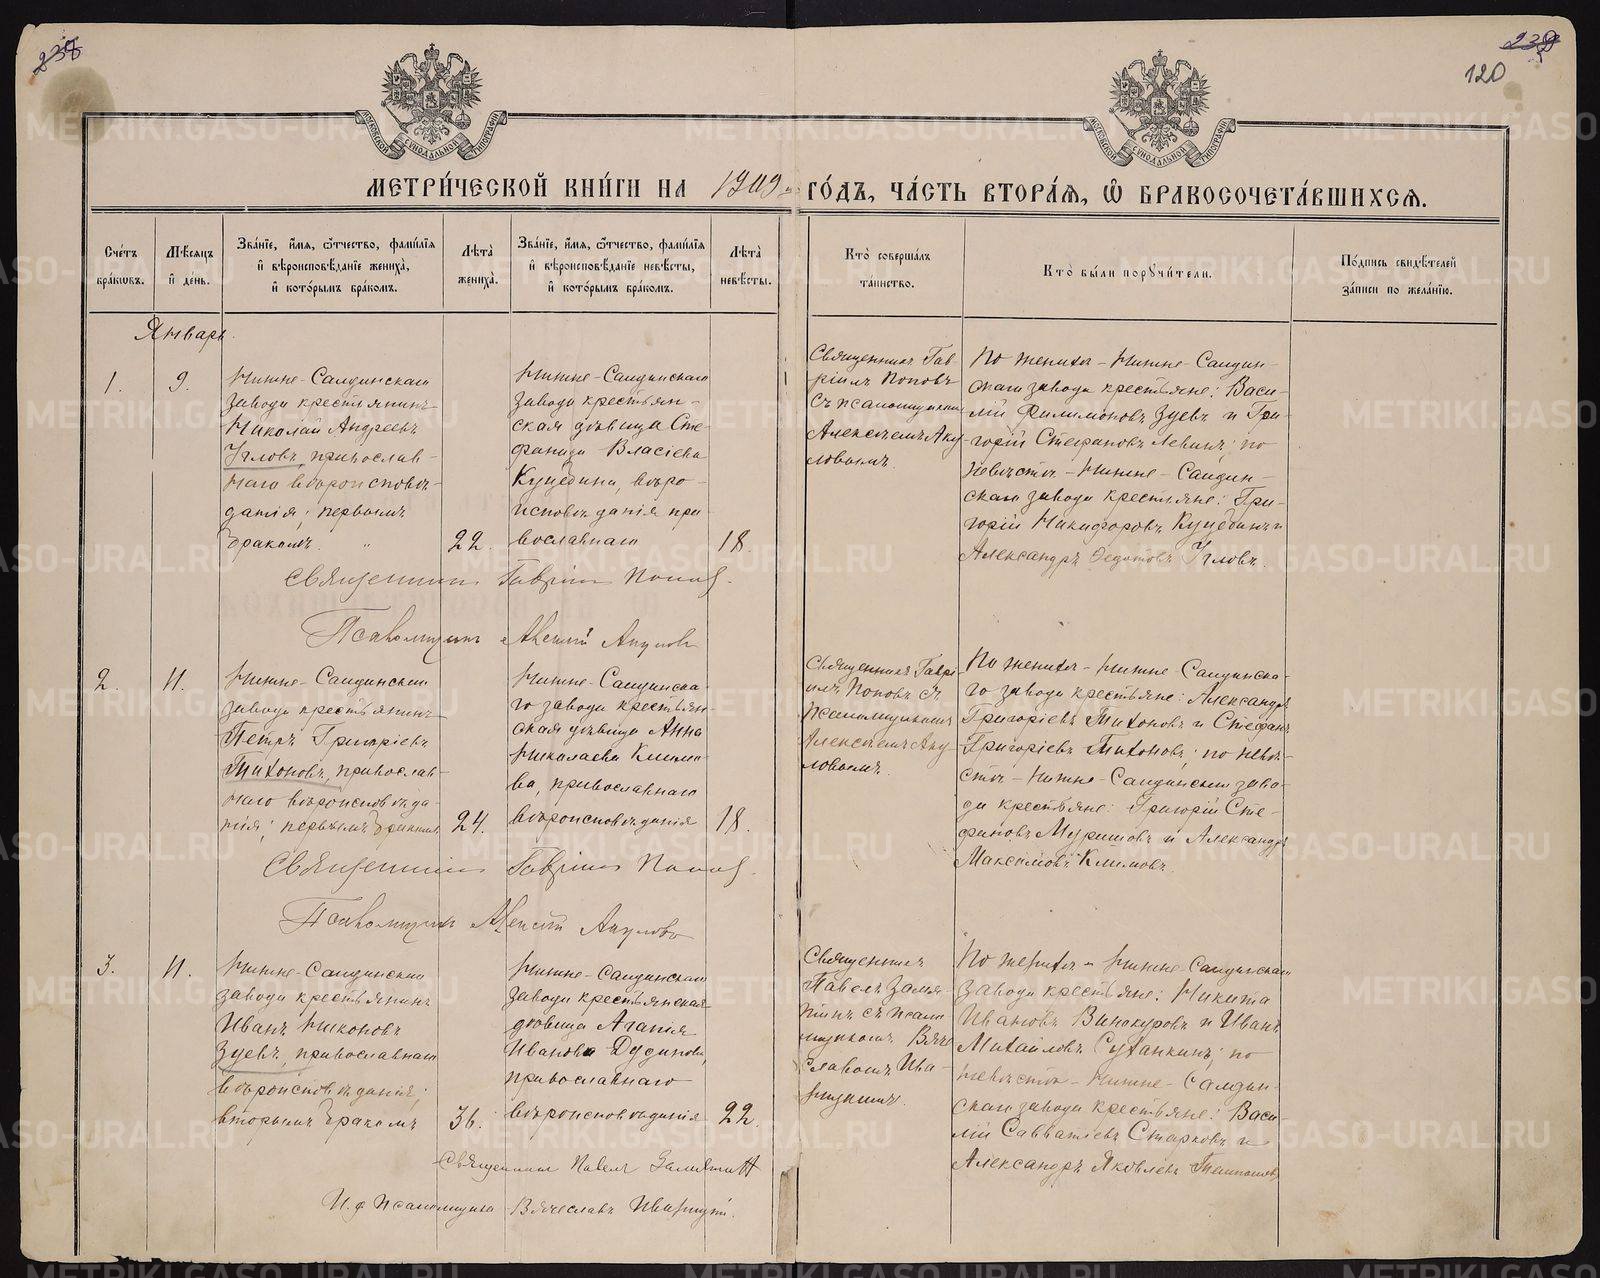 238
239
120
МОСКОВСКОЙ СѴНОДАЛЬНОЙ ТИПОГРАФІИ
МОСКОВСКОЙ СѴНОДАЛЬНОЙ ТИПОГРАФІИ
МЕТРИ́ЧЕСКОЙ КНИ́ГИ НА 1909 ГО́ДЪ, ЧА́СТЬ ВТОРА́Ѧ, Ѽ БРАКОСОЧЕТА́ВШИХСѦ.
Сче́тъ бра́кѡвъ.
Мѣ́сѧцъ и҆ де́нь.
Зва́нїе, и҆́мѧ, ѻ҆́тчество, фами́лїѧ и҆ вѣроисповѣ́данїе жениха̀, и҆ кото́рымъ бра́комъ.
Лѣта̀ жениха̀.
Зва́нїе, и҆́мѧ, ѻ҆́тчество, фами́лїѧ и҆ вѣроисповѣ́данїе невѣ́сты, и҆ кото́рымъ бра́комъ.
Лѣта̀ невѣ́сты.
Кто̀ соверша́лъ та́инство.
Кто̀ бы́ли порꙋчи́тели.
По́дпись свидѣ́телей за́писи по жела́нїю.
Январь.
1.
9.
Нижне-Салдинскаго
завода крестьянинъ
Николай Андреевъ
Угловъ, православ-
наго вѣроисповѣ-
данія; первымъ
бракомъ. "
22.
Нижне-Салдинскаго
завода крестьян-
ская дѣвица Сте-
фанида Власіева
вѣро-
исповѣданія пра-
вославнаго
18.
Священникъ Гав-
ріилъ Поповъ
съ псаломщикомъ
Алексѣемъ Аку-
ловымъ.
По женихѣ - Нижне-Салдин-
скаго завода крестьяне: Васи-
лій Филимоновъ Зуевъ и Гри-
горій Стефановъ Левинъ; по
невѣстѣ - Нижне-Салдин-
скаго завода крестьяне: Гри-
горій Никифоровъ и
Александръ Ѳедотовъ Угловъ.
Священникъ Гавріилъ Поповъ.
Псаломщикъ Алексій Акуловъ
2.
11.
Нижне-Салдинскаго
завода крестьянинъ
Петръ Григоріевъ
Тихоновъ, православ-
наго вѣроисповѣда-
нія; первымъ бракомъ.
24.
Нижне-Салдинска-
го завода крестьян-
ская дѣвица Анна
Николаева Климо-
ва, православнаго
вѣроисповѣданія
18.
Священникъ Гаврі-
илъ Поповъ съ
псаломщикомъ
Алексѣемъ Аку-
ловымъ.
По женихѣ - Нижне-Салдинска-
го завода крестьяне: Александръ
Григоріевъ Тихоновъ и Стефанъ
Григоріевъ Тихоновъ; по невѣ-
стѣ - Нижне-Салдинскаго заво-
да крестьяне: Григорій Сте-
фановъ и Александръ
Максимовъ Климовъ.
Священникъ Гавріилъ Поповъ.
Псаломщикъ Алексій Акуловъ
3.
11.
Нижне-Салдинскаго
завода крестьянинъ
Иванъ Никоновъ
Зуевъ, православнаго
вѣроисповѣданія;
вторымъ бракомъ
36.
Нижне-Салдинскаго
завода крестьянская
дѣвица Агапія
Иванова Дудинова,
православнаго
вѣроисповѣданія
22.
Священникъ
Павелъ Замя-
тинъ съ псалом-
щикомъ Вяче-
славомъ Ива-
По женихѣ - Нижне-Салдинскаго
завода крестьяне: Никита
Ивановъ Винокуровъ и Иванъ
Михайловъ Суханкинъ; по
невѣстѣ - Нижне-Салдин-
скаго завода крестьяне: Васи-
лій Савватіевъ Старковъ и
Александръ Яковлевъ
Священникъ Павелъ Замятинъ
И. д. псаломщика Вячеславъ